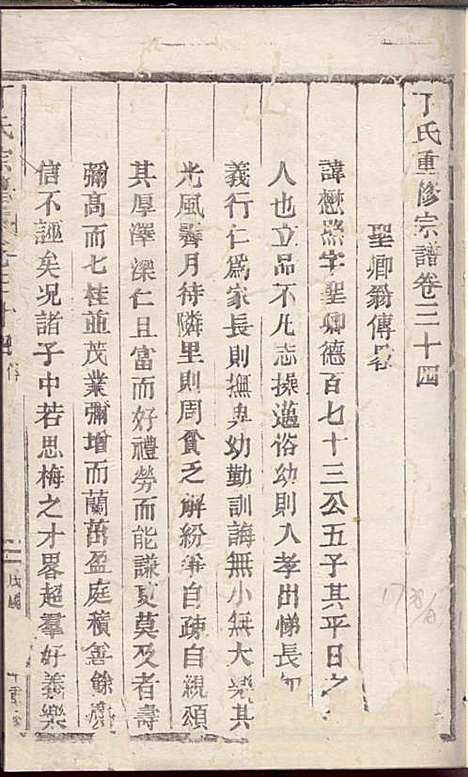 丁氏重修宗譜卷三十四
聖卿翁傳畧
諱懋熙字聖卿德百七十三公五子其平日之
人也立品不凡志操邁俗幼則入孝出悌長
義行仁為家長則撫與幼勤訓誨無小無大其
光風霽月待隣里則周貧乏解紛爭自疎自親頌
其厚澤深仁且富而好禮勞而能謙夏莫及者壽
彌高而七桂並茂業彌增而蘭茁盈庭積善餘慶
信不誣矣况諸子中若思梅之才畧超羣好義樂
丁氏宗譜 卷三十四 傳